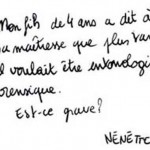 Mon fils de 4 ans a dit à
sa maîtresse que plus tar
il voulait être entomologi
forensique.
Est-ce grave?
NÉNETTE